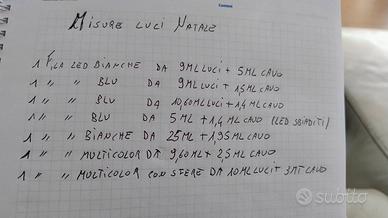 MISURE LUCI NATALE
1 FILA LED BIANCHE DA 9ML LUCI + 5 ML CAVO
1 " " BLU DA 9ML LUCI + 1,5 ML CAVO
1 " " BLU DA 10,60 ML LUCI + 1,4 ML CAVO
1 " " BLU DA 5 ML + 1,4 ML CAVO (LED SBIADITI)
1 " " BIANCHE DA 25 ML + 1,95 ML CAVO
1 " " MULTICOLOR DA 9,60 ML + 2,5 ML CAVO
1 " " MULTICOLOR CON SFERE DA 10 ML LUCI + 3 MT CAVO
subito